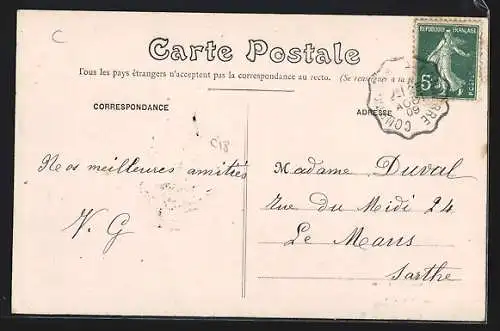 C
Carte Postale
Tous les pays étrangers n'acceptent pas la correspondance au recto. (Se renseigner à la
CORRESPONDANCE
ADRESSE
RÉPUBLIQUE FRANÇAISE
5c
POSTES
AOU
09
C18
Nos meilleures amitiés
V. G
Madame Duval
rue du Midi 24
Le Mans
Sarthe